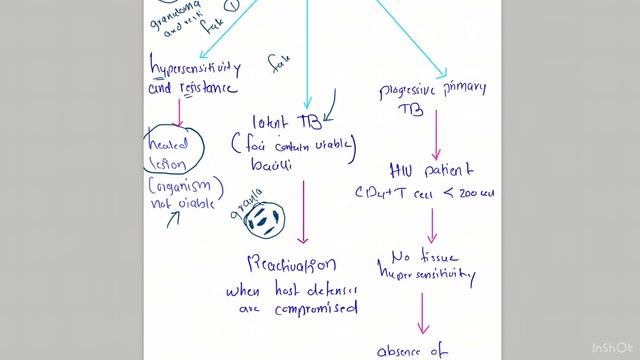 granuloma
①
fate
hypersensitivity
and resistance
healed
lesion
(organism)
not viable
fate
latent TB
(foci contain viable)
bacilli
granula
Reactivation
when host defenses
are compromised
progressive primary
TB
HIV patient
CD4+T cell < 200 cell
No tissue
hypersensitivity
absence of
InShOt